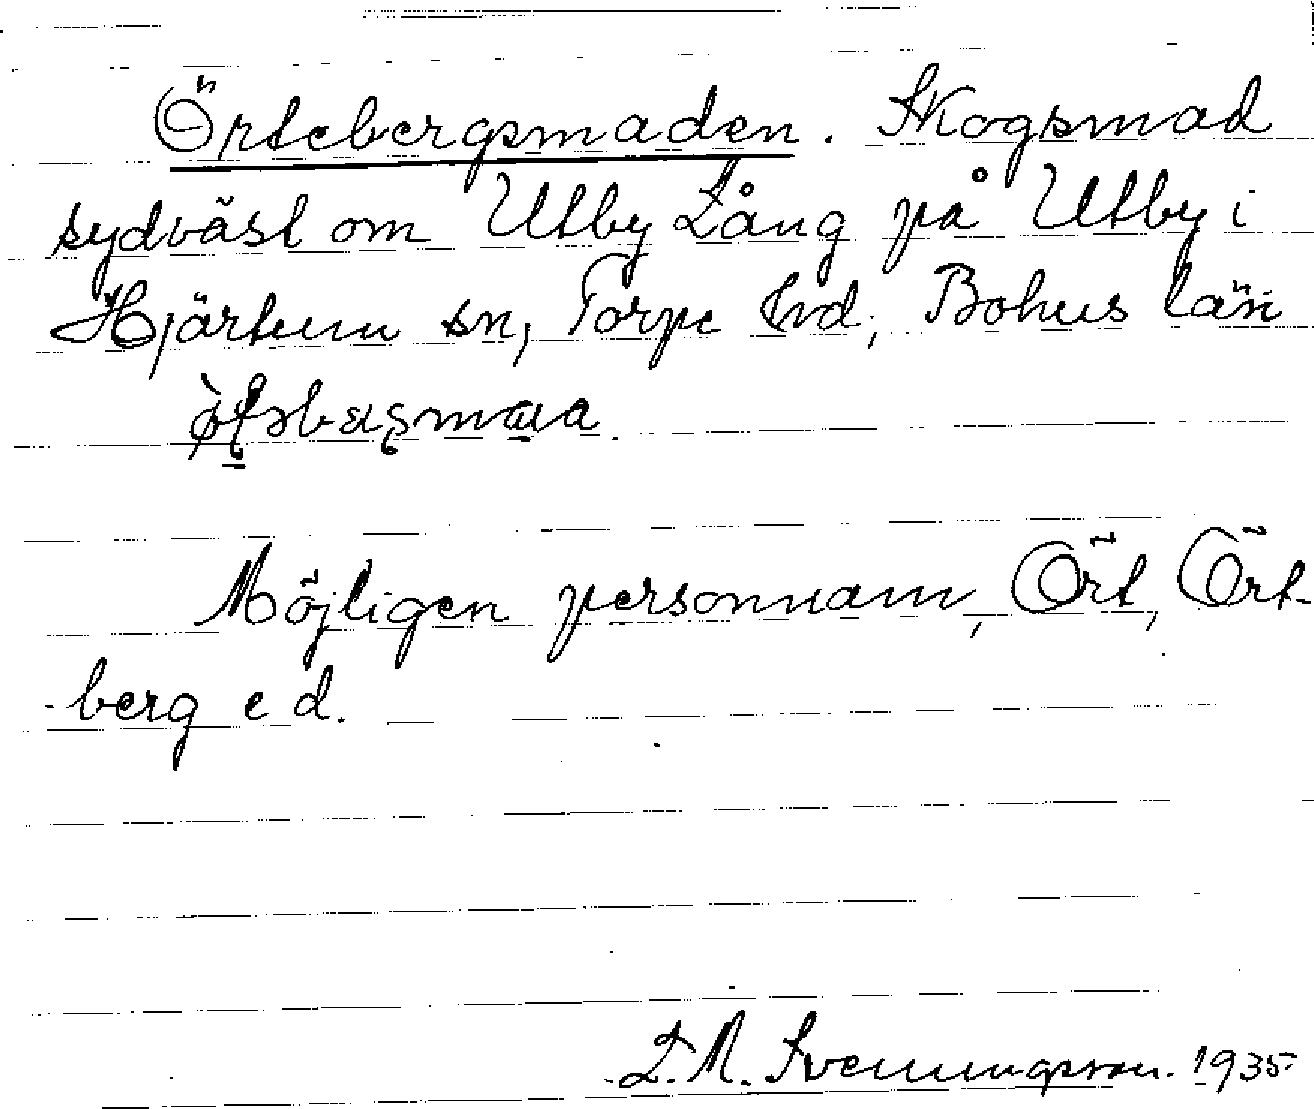 Örtebergsmaden. Skogsmad
sydväst om Utby Lång på Utby i
Hjärtum sn, Torpe hd, Bohus län
Möjligen personnamn, Ört, Ört-
berg e d.
L.M. Svenningsson. 1935